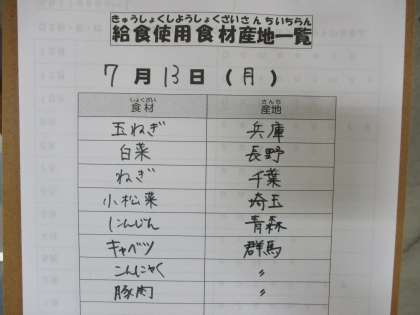 きゅうしょくしようしょくざいさんちいちらん
給食使用食材産地一覧
7月13日(月)
しょくざい さんち
食材 産地
玉ねぎ 兵庫
白菜 長野
ねぎ 千葉
小松菜 埼玉
にんじん 青森
キャベツ 群馬
こんにゃく 〃
豚肉 〃